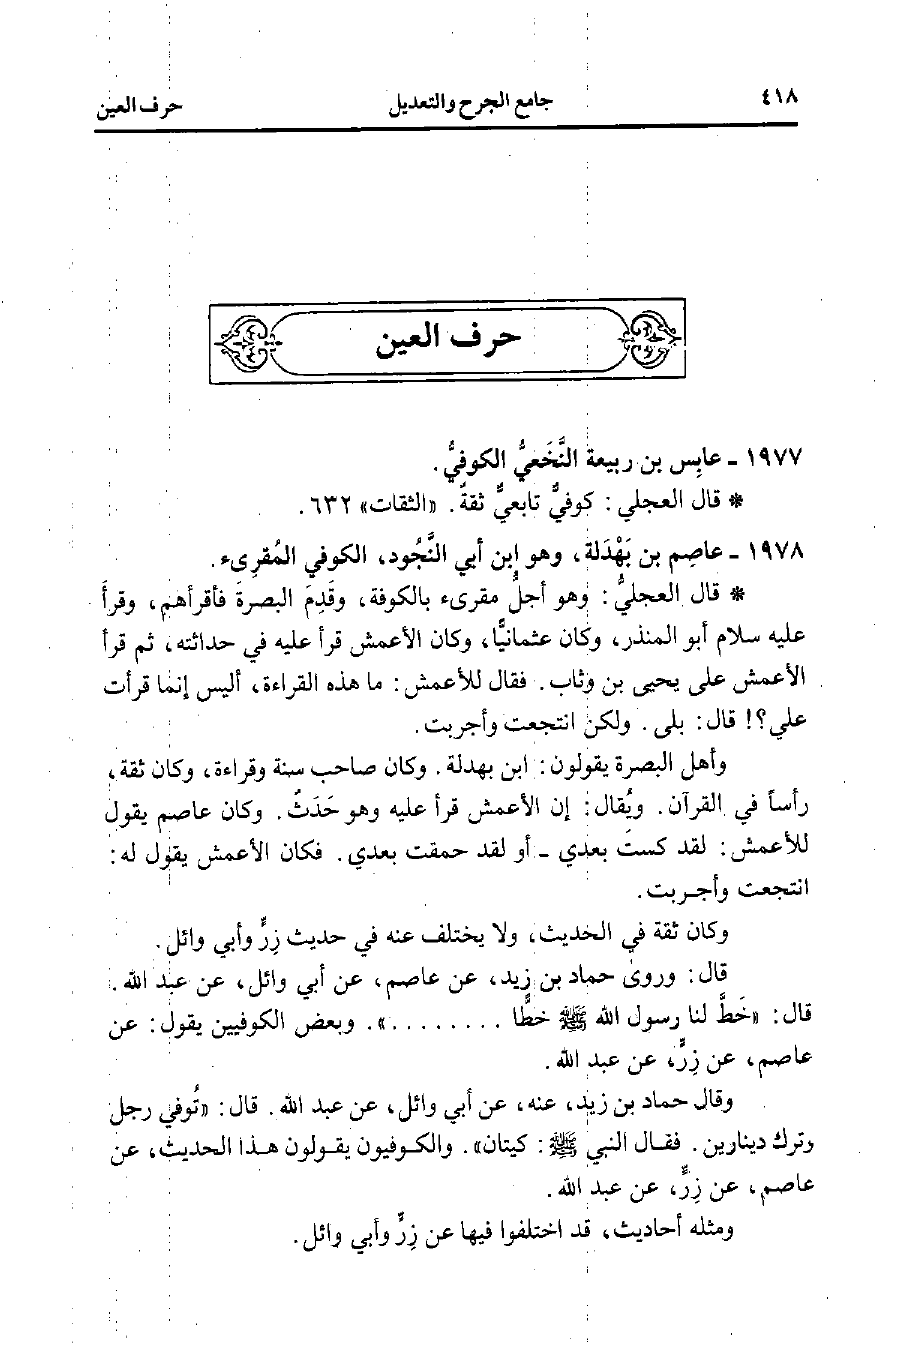 ٤١٨ جامع الجرح والتعديل حرف العين
حرف العين
١٩٧٧ ـ عابِس بن ربيعة النَّخَعيُّ الكوفيُّ.
* قال العجلي: كوفيٌّ تابعيٌّ ثقةٌ. «الثقات» ٦٣٢.
١٩٧٨ ـ عاصِم بن بَهْدَلة، وهو ابن أبي النَّجُود، الكوفي المُقرِىء.
* قال العجليُّ: وهو أجلُّ مقرىء بالكوفة، وقَدِمَ البصرةَ فأقرأهم، وقرأَ
عليه سلام أبو المنذر، وكان عثمانيًّا، وكان الأعمش قرأ عليه في حداثته، ثم قرأ
الأعمش على يحيى بن وثاب. فقال للأعمش: ما هذه القراءة، أليس إنما قرأت
علي؟! قال: بلى. ولكن انتجعت وأجربت.
وأهل البصرة يقولون: ابن بهدلة. وكان صاحب سنة وقراءة، وكان ثقة،
رأساً في القرآن. ويُقال: إن الأعمش قرأ عليه وهو حَدَثٌ. وكان عاصم يقول
للأعمش: لقد كستَ بعدي ـ أو لقد حمقت بعدي. فكان الأعمش يقول له:
انتجعت وأجربت.
وكان ثقة في الحديث، ولا يختلف عنه في حديث زِرٍّ وأبي وائل.
قال: وروى حماد بن زيد، عن عاصم، عن أبي وائل، عن عبد الله.
قال: «خَطَّ لنا رسول الله ﷺ خطًّا ........». وبعض الكوفيين يقول: عن
عاصم، عن زِرٍّ، عن عبد الله.
وقال حماد بن زيد، عنه، عن أبي وائل، عن عبد الله. قال: «تُوفي رجل
وترك دينارين. فقال النبي ﷺ: كيتان». والكوفيون يقولون هذا الحديث، عن
عاصم، عن زِرٍّ، عن عبد الله.
ومثله أحاديث، قد اختلفوا فيها عن زِرٍّ وأبي وائل.